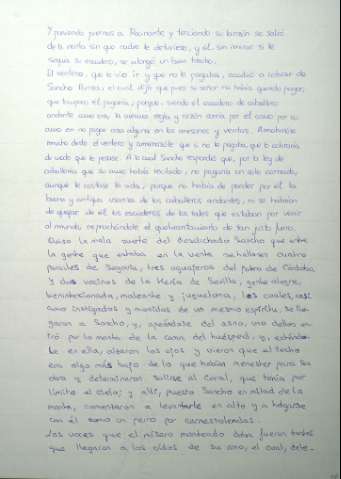 Y poniendo piernas a Rocinante y terciando su lanzón se salió
de la venta sin que nadie le detuviese, y él, sin mirar si le
seguía su escudero, se alongó un buen trecho.
El ventero, que le vio ir y que no le pagaba, acudió a cobrar de
Sancho Panza, el cual dijo que pues su señor no había querido pagar,
que tampoco él pagaría, porque, siendo él escudero de caballero
andante como era, la misma regla y razón corría por él como por su
amo en no pagar cosa alguna en los mesones y ventas. Amohinóse
mucho desto el ventero y amenazóle que si no le pagaba, que lo cobraría
de modo que le pesase. A lo cual Sancho respondió que, por la ley de
caballería que su amo había recibido, no pagaría un solo cornado,
aunque le costase la vida, porque no había de perder por él la
buena y antigua usanza de los caballeros andantes, ni se habían
de quejar de él los escuderos de los tales que estaban por venir
al mundo, reprochándole el quebrantamiento de tan justo fuero.
Quiso la mala suerte del desdichado Sancho que entre
la gente que estaba en la venta se hallasen cuatro
perailes de Segovia, tres agujeros del potro de Córdoba
y dos vecinos de la Heria de Sevilla, gente alegre,
bienintencionada, maleante y juguetona, los cuales, casi
como instigados y movidos de un mismo espíritu, se lle-
garon a Sancho, y, apeándole del asno, uno dellos en-
tró por la manta de la cama del huésped, y, echándo-
le en ella, alzaron los ojos y vieron que el techo
era algo más bajo de lo que habían menester para su
obra y determinaron salirse al corral, que tenía por
límite el cielo; y allí, puesto Sancho en mitad de la
manta, comenzaron a levantarle en alto y a holgarse
con él como con perro por carnestolendas.
Las voces que el mísero manteado daba fueron tantas
que llegaron a los oídos de su amo, el cual, dete-